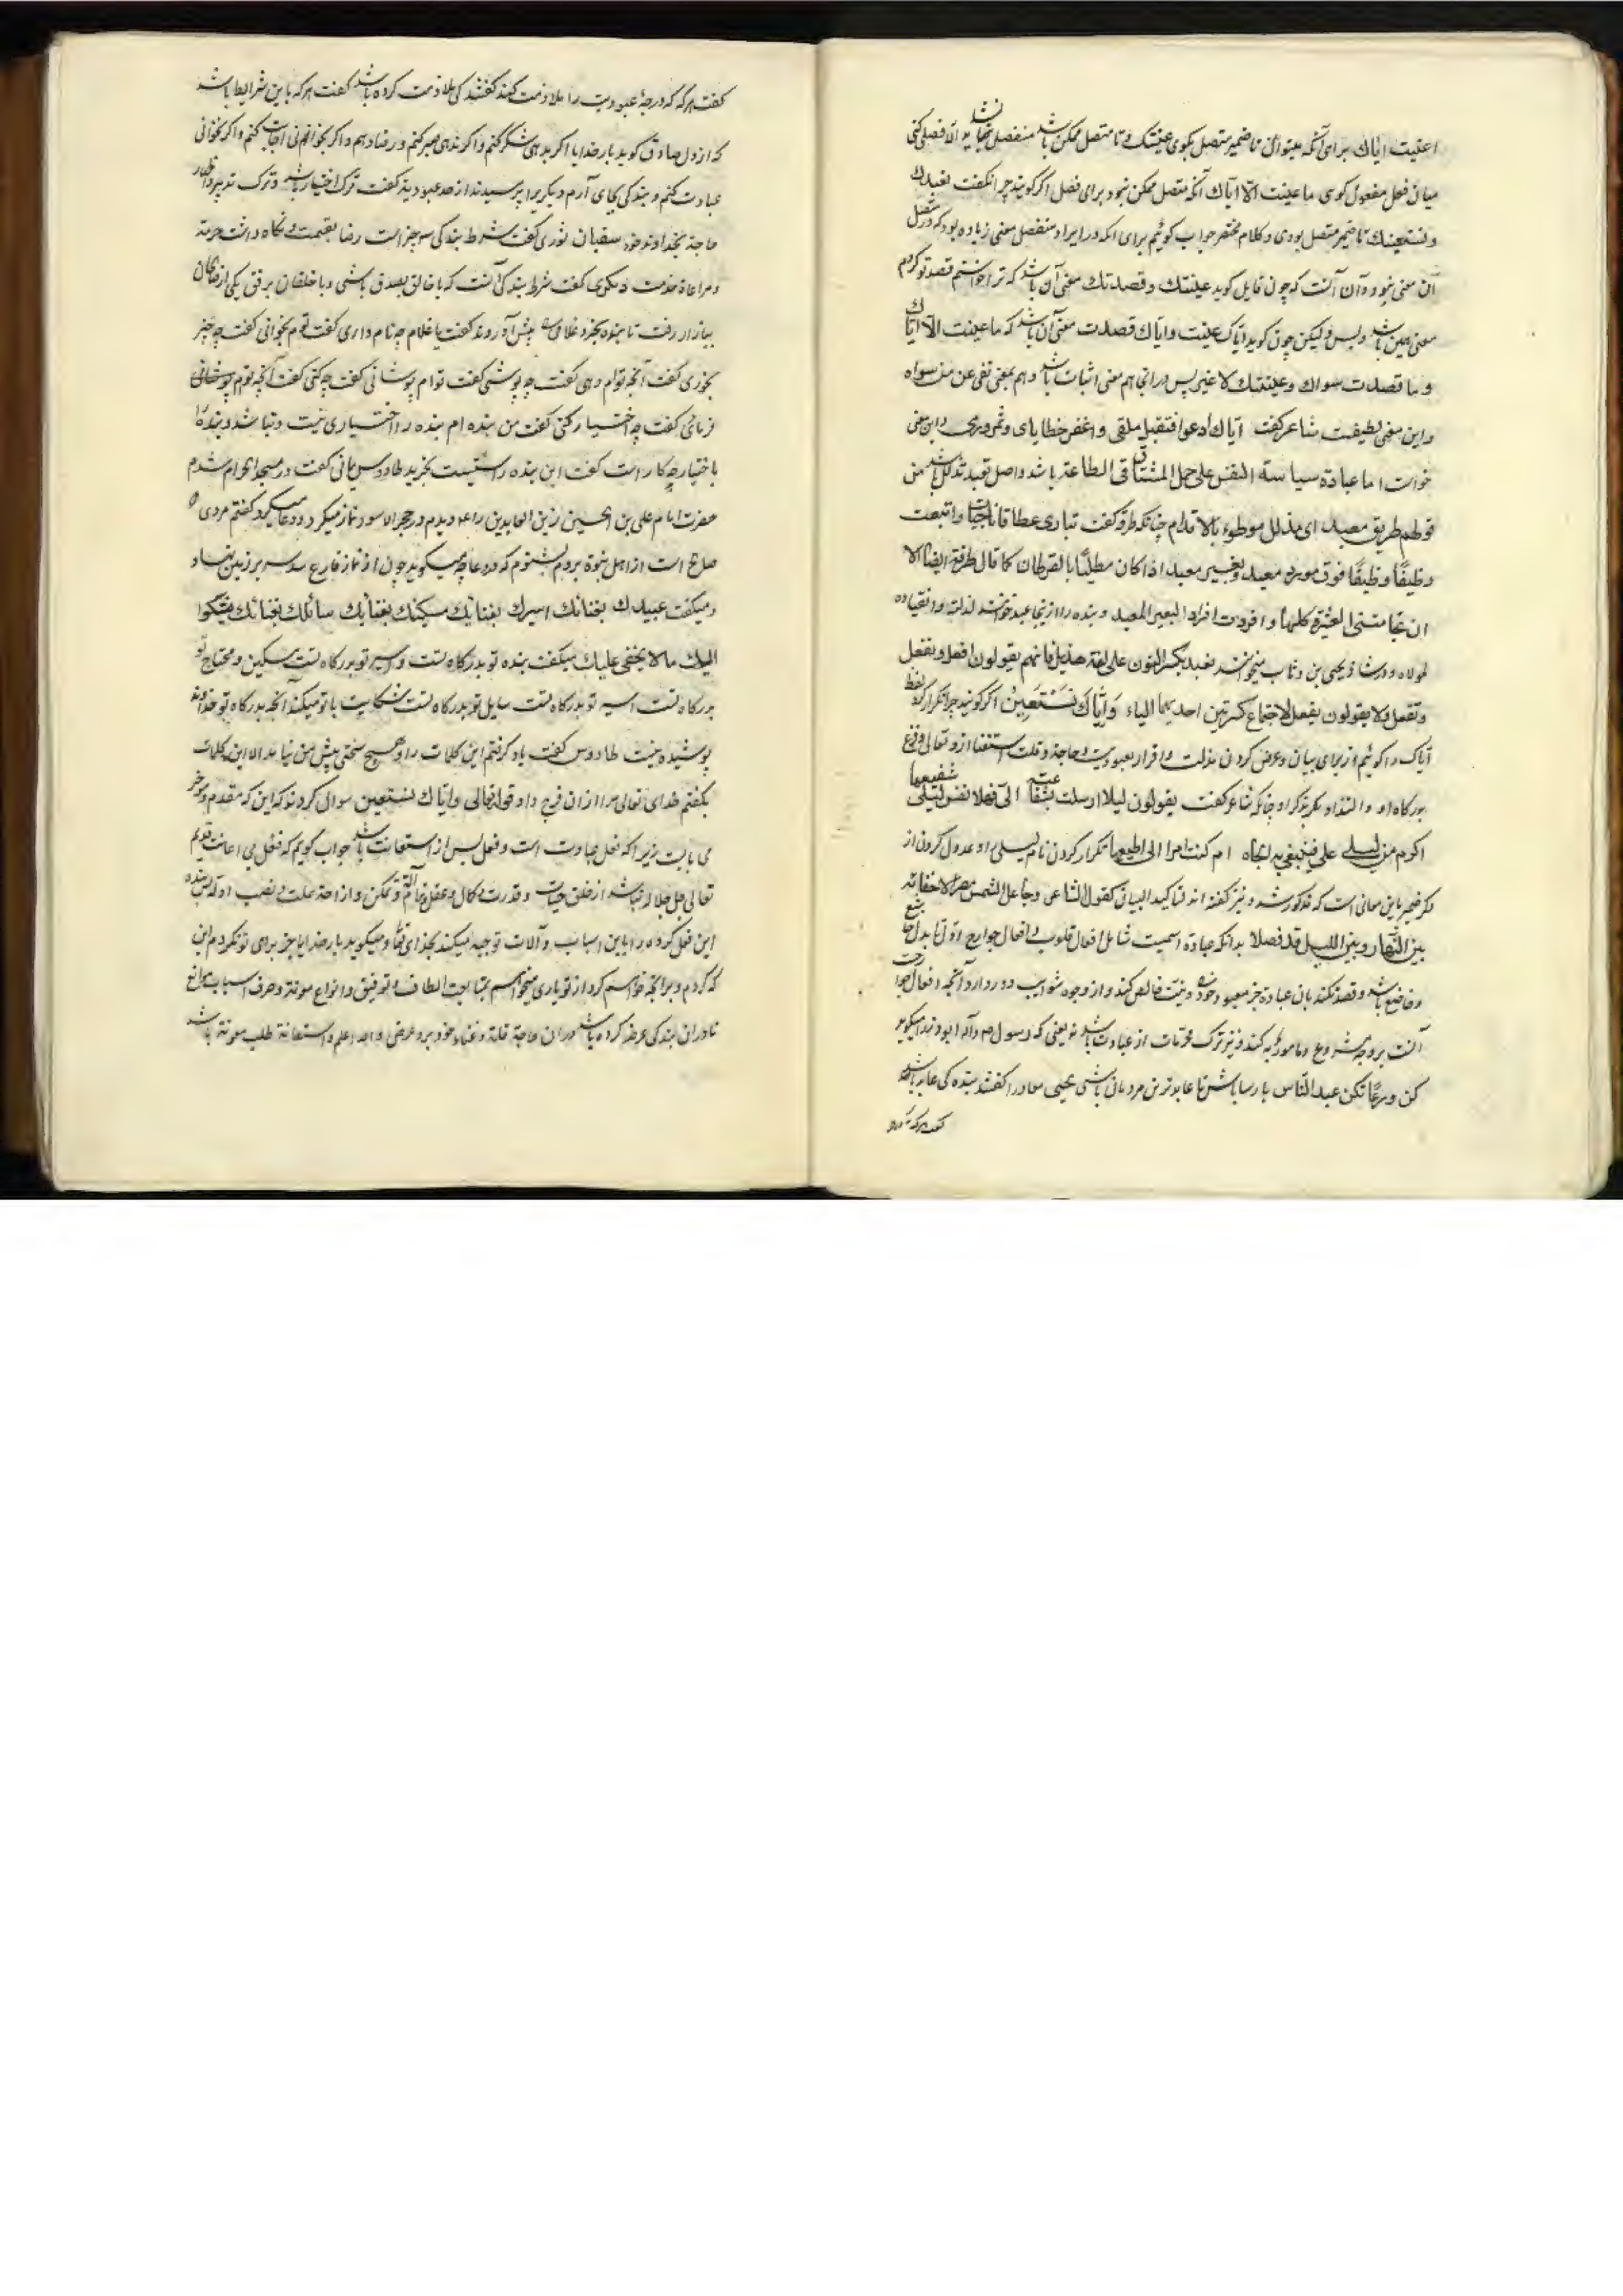 اعنیت ایاك برای آنکه میتوانی تا ضمیر متصل بگوی عنیتك و تا متصل ممکن باشد منفصل نشاید الا فصل کنی
میان فعل و مفعول گوی ما عنیت الا ایاك آنکه متصل ممکن نبود برای فصل اگر گویند چرا نگفت نعبدك
و نستعینك تا ضمیر متصل بودی و کلام مختصر جواب گوئیم برای آنکه در ایراد منفصل معنی زیاده بود که در متصل
آن معنی نبود و آن آنست که چون قایل گوید عنیتك و قصدتك معنی آن باشد که ترا خواستم قصد تو کردم
معنی همین باشد و بس و لیکن چون گوید ایاك عنیت و ایاك قصدت معنی آن باشد که ما عنیت الا ایاك
و ما قصدت سواك و عنیتك لا غیر پس در آنجا هم معنی اثبات باشد و هم بمعنی نفی عن من سواه
و این معنی لطیفست شاعر گفت ایاك ادعوا فتقبل ملقی و اغفر خطایای و ثمر ورقی و این معنی
خواست اما عبادة سیاسة النفس علی حمل المشتاق فی الطاعة باشد و اصل تعبد تذلل باشد من
قولهم طریق معبد ای مذلل موطوء بالاقدام چنانکه طرفه گفت تباری عطاقا ناجیات و اتبعت
وظیفا وظیفا فوق مور معبد و بعیر معبد اذا کان مطلیا بالقطران کما قال طرفة ایضا الا
ان تحامتنی العشیرة کلها و افردت افراد البعیر المعبد و بنده را از اینجا عبد خوانند لذلته و انقیاده
لمولاه و در شاذ یحیی بن وثاب میخواند نعبد بکسر النون علی لغة هذیل فانهم یقولون افعل و نفعل
و تفعل و لا یقولون یفعل لاجتماع کسرتین احدیهما الیاء وایاك نستعین اگر گویند چرا تکرار کرد لفظ
ایاك را گوئیم از برای بیان و عرض کردن مذلت و اقرار بعبودیت و حاجة و قلت استغنا از و تعالی و فزع
بدرگاه او و التذاذ بذکر او چنانکه شاعر گفت یقولون لیلا ارسلت بشفاعة الی فهلا نفس لیلی شفیعها
اکرم من لیلی علی فتبتغی به الجاه ام کنت امرا لا اطیعها تکرار کردن نام لیلی و عدول کردن از
ذکر ضمیر باین معانی است که مذکور شد و نیز گفته اند تاکید البیان کقول الشاعر وجاعل الشمس مصرا لاخفا به
بین النهار و بین اللیل قد فصلا بدانکه عبادة اسمیست شامل افعال قلوب و افعال جوارح اول باید دل خاشع
و خاضع باشد و قصد نکند بآن عبادة جز معبود خود و نیت خالص کند و از وجوه شوایب دور دارد آنچه افعال جوارحست
آنست بر وجه مشروع و مامور به کند و نیز ترک محرمات از عبادت باشد نه بینی که رسول صم و آله ابو درداء میگوید
کن ورعا تکن عبد الناس پارسا باش تا عابدترین مردمان باشی یحیی معاذ را گفتند بنده کی عابد باشد
گفت هرگه که
گفت هرگه که درجهٔ عبودیت را ملازمت کند گفتند کی ملازمت کرده باشد گفت هرگه باین شرایط باشد
که از دل صادق گوید بار خدایا اگر بدهی شکر کنم و اگر ندهی صبر کنم و رضا دهم و اگر بخوانی اجابت کنم و اگر نخوانی
عبادت کنم و بندگی بجای آرم دیگری را پرسیدند از حد عبودیة گفت ترک اختیار باشد و ترک تدبیر و اظهار
حاجة بخداوند خود سفیان ثوری گفت شرط بندگی سه چیز است رضا بقسمت و نگاه داشت حرمة
و مراعاة خدمت دیگری گفت شرط بندگی آنست که با خالق بصدق باشی و با خلقان برفق یکی از صالحان
ببازار رفت تا بنده بخرد غلامی پیش آوردند گفت یا غلام چه نام داری گفت توم بخوانی گفت چه چیز
بخوری گفت آنچه توام دهی گفت چه پوشی گفت توام پوشانی گفت چه کنی گفت آنچه توم
فرمائی گفت چه اختیار کنی گفت من بنده ام بنده را اختیاری نیست و بنده را
باختیار چه کار است گفت این بنده راستیست بخرید طاووس یمانی گفت در مسجد الحرام شدم
حضرت امام علی بن الحسین زین العابدین را عم دیدم در حجر الاسود نماز میکرد و دعا میکرد گفتم مردی
صالح است از اهل نبوة بروم بشنوم که در دعا چه میگوید چون از نماز فارغ شد سر بر زمین نهاد
و میگفت عبیدك بفنائك اسیرك بفنائك مسکینك بفنائك سائلك بفنائك یشکوا
الیك ما لا یخفی علیك میگفت بنده تو بدرگاه تست و اسیر تو بدرگاه تست مسکین و محتاج تو
بدرگاه تست اسیر تو بدرگاه تست سایل تو بدرگاه تست شکایت با تو میکند آنچه بدرگاه تو خداوند
پوشیده نیست طاووس گفت یاد گرفتم این کلمات را و هیچ سختی پیش من نیامد الا این کلمات
بگفتم خدای تعالی مرا از آن فرج داد قوله تعالی وایاك نستعین سوال کردند که این که مقدم و مؤخر
می بایست زیرا که فعل عبادت است و فعل پس از استعانت باشد جواب گویم که فعل بی اعانت قدیم
تعالی جل جلاله نباشد از خلق حیات و قدرت و کمال و عقل و آلة و تمکن و ازاحة علت و نصب ادله پس بنده
این فعل کرده را باین اسباب و آلات توجیه میکند بخدای تعالی و میگوید بار خدایا جز برای تو نکردم این
که کردم و برآنچه خواهم کرد از تو یاری میخواهم بمتابعت الطاف و توفیق و انواع موئنة و صرف اسباب موانع
تا در آن بندگی عرضه کرده باشد و در آن حاجة فاقة و غناء خود برو عرض و الله اعلم و استعانة طلب موئنة باشد